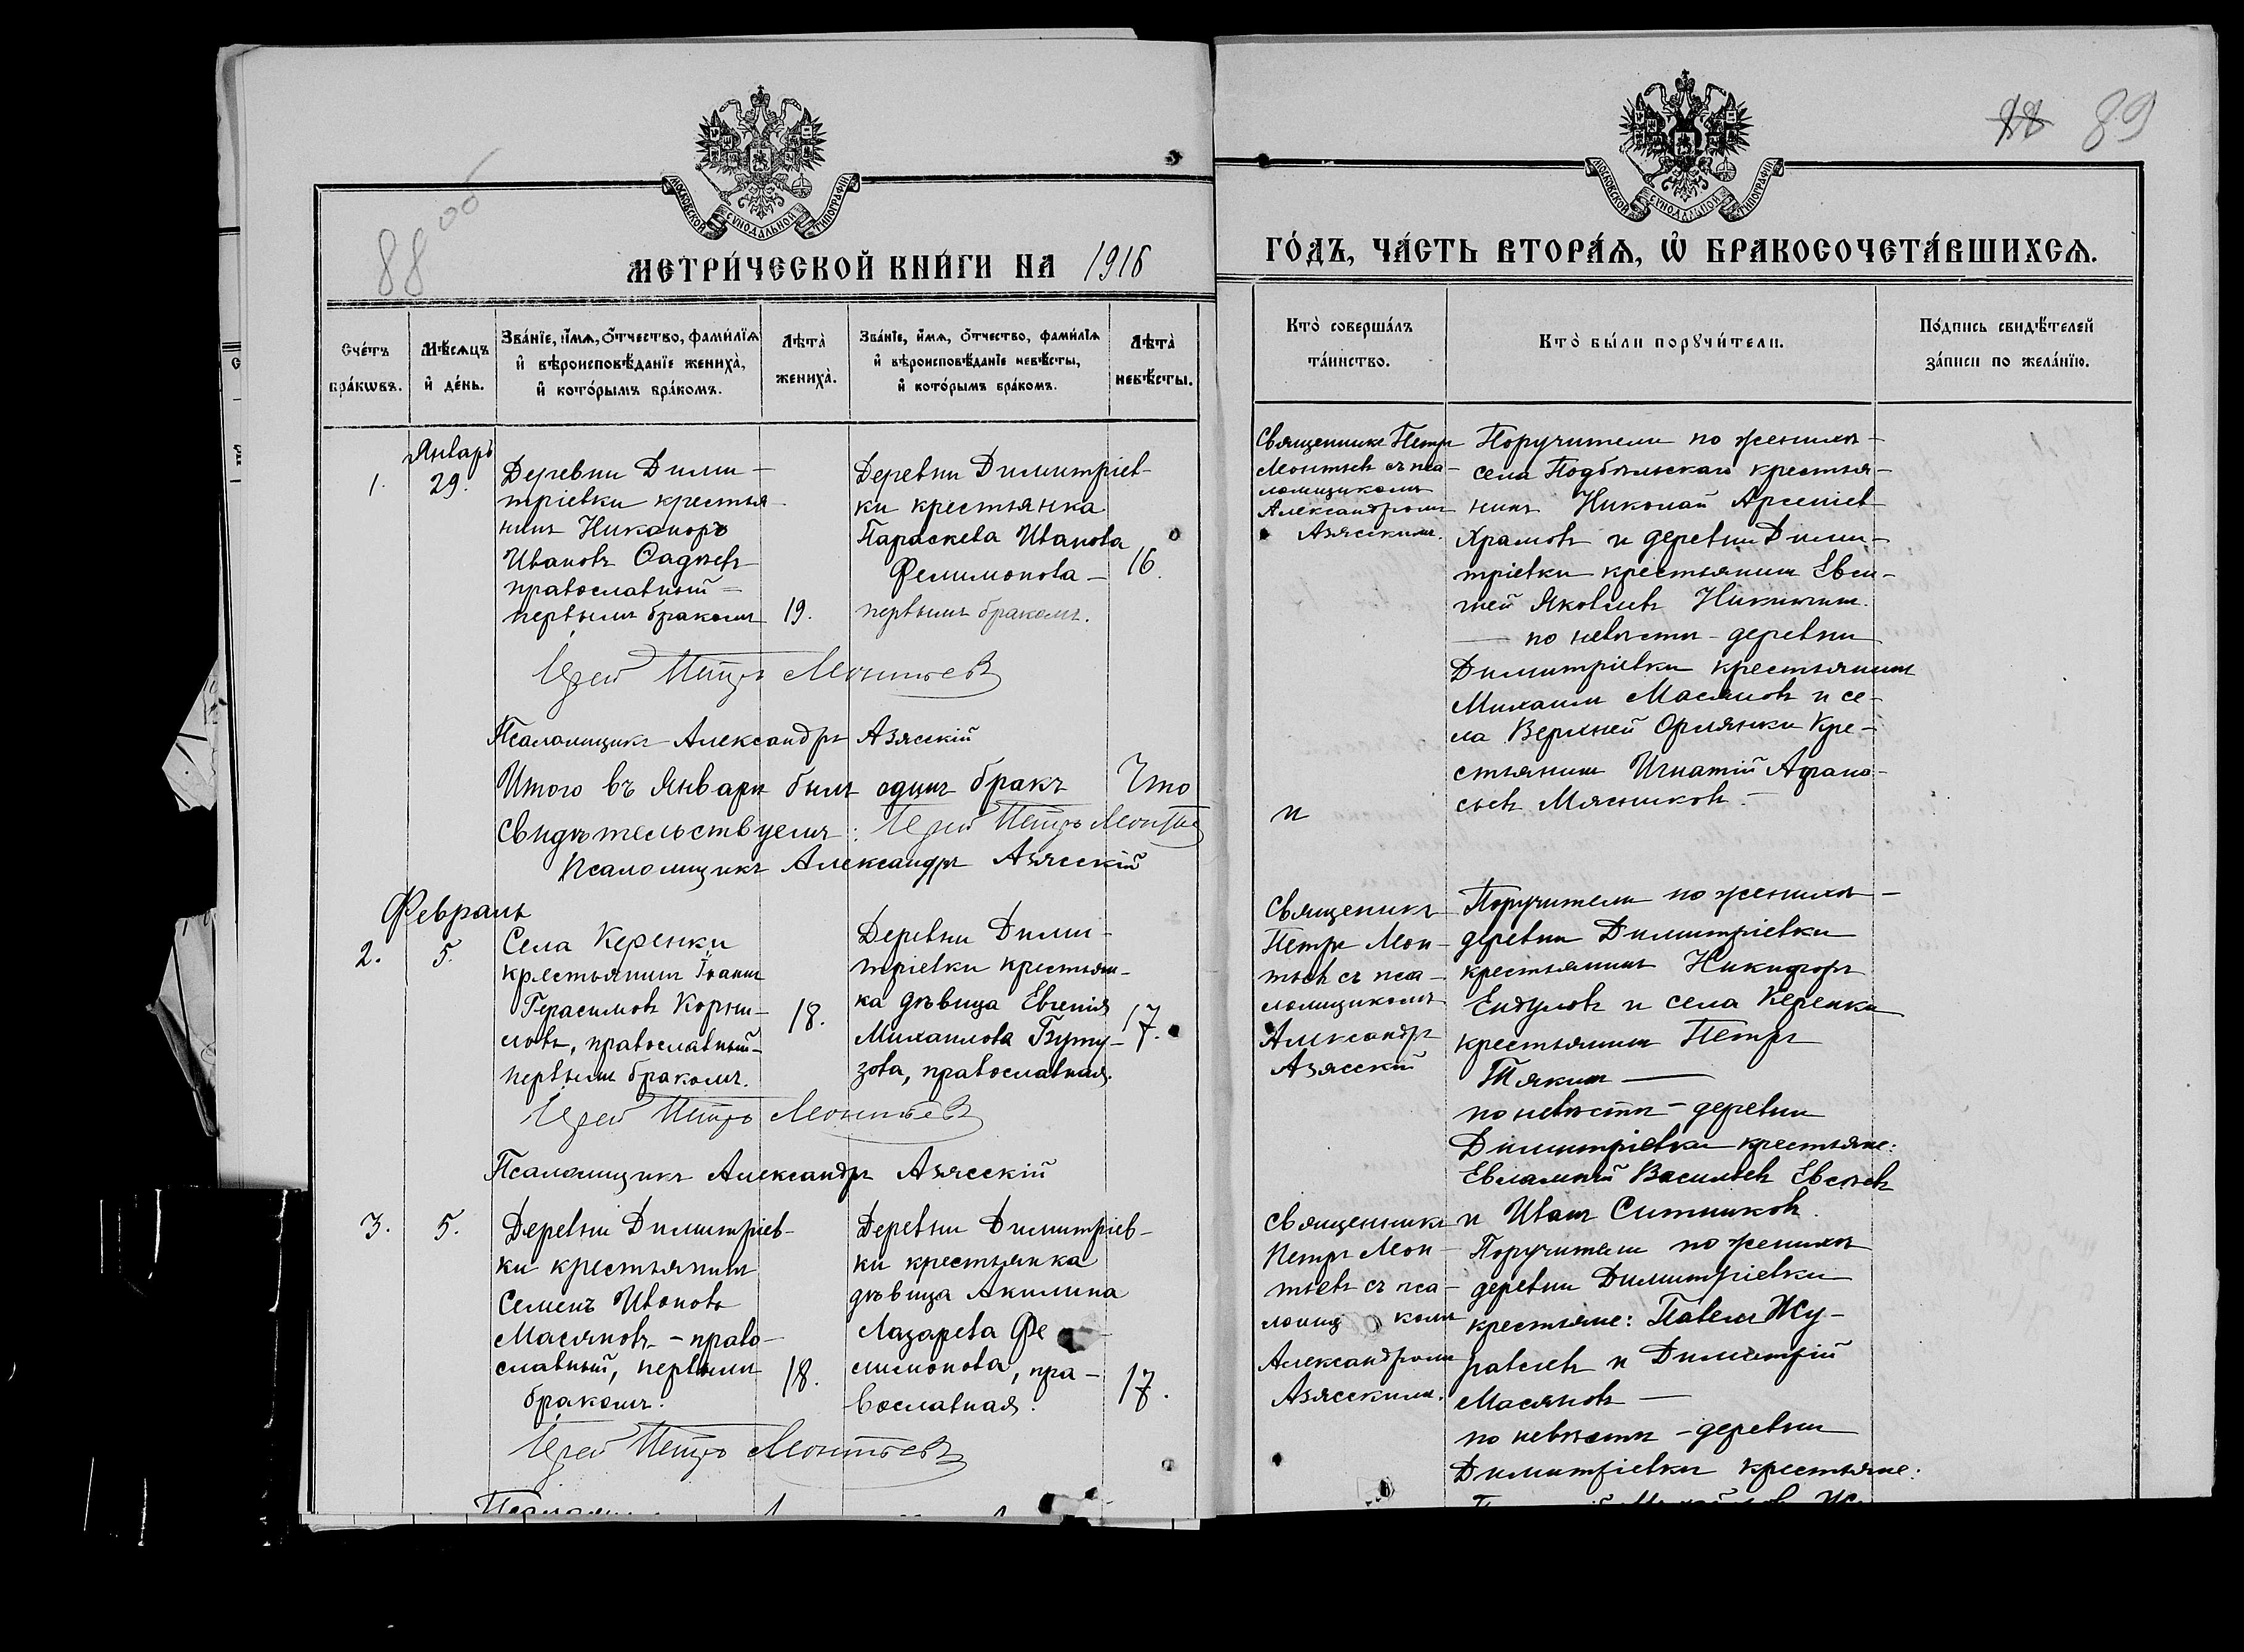 88 об
МОСКОВСКОЙ СѴНОДАЛЬНОЙ ТИПОГРАФІИ
МЕТРИ́ЧЕСКОЙ КНИ́ГИ НА 1916
Сче́тъ бра́кѡвъ.
Мѣ́сяцъ и҆ де́нь.
Зва́нїе, и҆́мѧ, ѻ҆́тчество, фами́лїѧ и҆ вѣроисповѣ́данїе жениха̀, и҆ кото́рымъ бра́комъ.
Лѣта̀ жениха̀.
Зва́нїе, и҆́мѧ, ѻ҆́тчество, фами́лїѧ и҆ вѣроисповѣ́данїе невѣ́сты, и҆ кото́рымъ бра́комъ.
Лѣта̀ невѣ́сты.
Январь
1.
29.
Деревни Дими-
тріевки крестья-
нинъ Никаноръ
Ивановъ Садѣевъ
православный =
первымъ бракомъ
19.
Деревни Димитріев-
ки крестьянка
Параскева Иванова
Филимонова -
первымъ бракомъ.
16.
Іерей Петръ Леонтьевъ
Псаломщикъ Александръ Азясскій
Итого въ Январѣ былъ одинъ бракъ Что
свидѣтельствуемъ: Іерей Петръ Леонтьев
Псаломщикъ Александръ Азясскій
Февраль
2.
5.
Села Керенки
крестьянинъ Іоаннъ
Герасимовъ Корни-
ловъ, православный-
первымъ бракомъ.
18.
Деревни Дими-
тріевки крестьян-
ка дѣвица Евгенія
Михаилова Буту-
зова, православная.
17.
Іерей Петръ Леонтьевъ
Псаломщикъ Александръ Азясскій
3.
5.
Деревни Димитріев-
ки крестьянинъ
Семенъ Ивановъ
Масяновъ - право-
славный, первымъ
бракомъ.
18.
Деревни Димитріев-
ки крестьянка
дѣвица Акилина
Лазарева Фе
лимонова, пра-
вославная.
17.
Іерей Петръ Леонтьевъ
88 89
МОСКОВСКОЙ СѴНОДАЛЬНОЙ ТИПОГРАФІИ
ГО́ДЪ, ЧА́СТЬ ВТОРА́Ѧ, Ѡ҆ БРАКОСОЧЕТА́ВШИХСѦ.
Кто̀ соверша́лъ та́инство.
Кто̀ бы́ли порꙋчи́тели.
По́дпись свидѣ́телей за́писи по жела́нїю.
Священникъ Петръ
Леонтьевъ съ пса-
ломщикомъ
Александромъ
Азясскимъ.
Поручители по женихѣ -
села Подбѣльскаго крестья-
нинъ Николай Арсеніев
Храмовъ и деревни Дими-
тріевки крестьянинъ Евси-
гней Яковлевъ Никитинъ.
— по невѣстѣ - деревни
Димитріевки крестьянинъ
Михаилъ Масяновъ и се-
ла Верхней Орлянки Кре-
стьянинъ Игнатій Афана-
сьевъ Мясниковъ. -
и
Священникъ
Петръ Леон-
тьевъ съ пса-
ломщикомъ
Александръ
Азясскій
Поручители по женихѣ -
деревни Димитріевки
крестьянинъ Никифоръ
Ендуловъ и села Керенки
крестьянинъ Петръ
Тякинъ —
по невѣстѣ - деревни
Димитріевки крестьяне:
Евлампій Васильевъ Евсѣевъ
и Иванъ Ситниковъ.
Священникъ
Петръ Леон-
тьевъ съ пса-
ломщ комъ
Александромъ
Азясскимъ.
Поручители по женихѣ
деревни Димитріевки
крестьяне: Павелъ Жу-
равлевъ и Димитрій
Масяновъ —
по невѣстѣ - деревни
Димитріевки крестьяне: